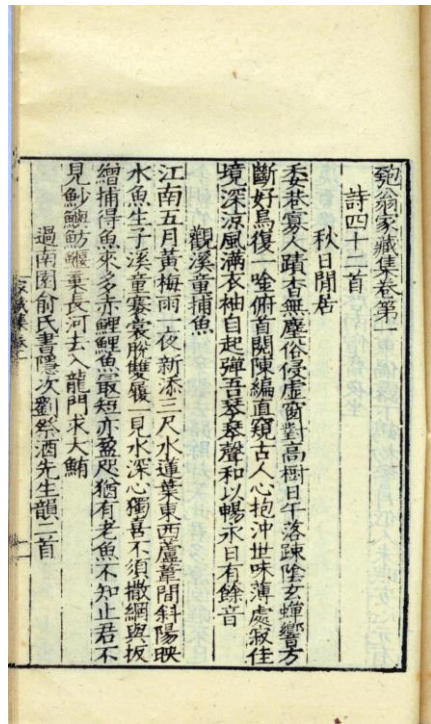 匏翁家藏集卷第一
詩四十二首
秋日閒居
委巷寡人蹟杳無塵俗侵虛窗對高樹日午落踈陰玄蟬響方
斷好鳥復一唫俯首閱陳編直窺古人心抱沖世味薄處寂佳
境深涼風滿衣袖自起彈吾琴琴聲和以暢永日有餘音
觀溪童捕魚
江南五月黃梅雨一夜新添三尺水蓮葉東西蘆葦間斜陽映
水魚生子溪童褰裳脫雙履一見水深心獨喜不須撒網與扳
罾捕得魚來多赤鯉鯉魚㝡短亦盈咫猶有老魚不知止君不
見魦鱮魴鰋棄長河去入龍門求大鮪
過南園俞氏書隱次劉祭酒先生韻二首